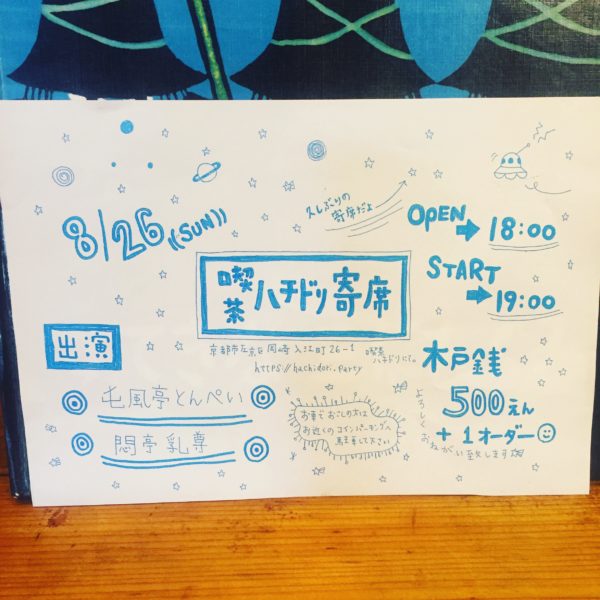 8/26((SUN))
久しぶりの
寄席だよ
OPEN➡18:00
START
➡19:00
喫茶ハチドリ寄席
京都市左京区岡崎入江町26-1 喫茶ハチドリにて。
https://hachidori.party
出演
屯風亭とんぺい
悶亭乳尊
お車でおこしの方は
お近くのコインパーキングへ
駐車して下さい
木戸銭
500えん
+1オーダー
よろしく
おねがい致します